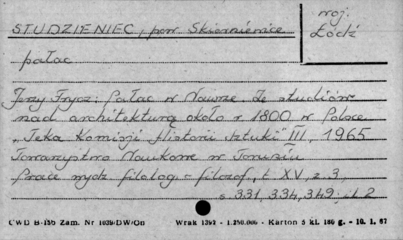 STUDZIENIEC, pow. Skierniewice
woj. Łódź
pałac
Jerzy Frycz: Pałac w Nawrze. Ze studiów
nad architekturą około r. 1800 w Polsce
"Teka Komisji Historii Sztuki" III, 1965
Towarzystwo Naukowe w Toruniu
Prace wydz. filolog.-filozof., t. XV, z. 3,
s. 331, 334, 349, il. 2
CWD B-135 Zam. Nr 1039/DW/Ob Wrak 1292 - 1.250.000 - Karton 5 kl. 180 g. - 10. 1. 67